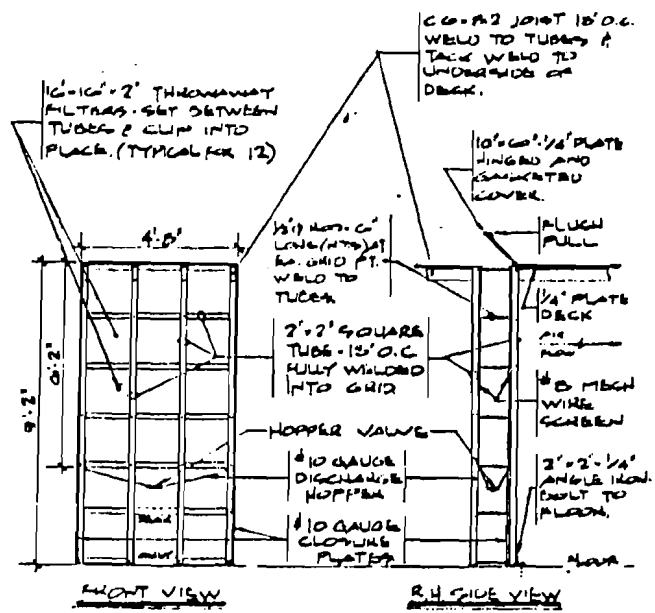 C 6 × 8.2 JOIST 18" O.C.
WELD TO TUBES &
TACK WELD TO
UNDERSIDE OF
DECK.
16" × 16" × 2" THROWAWAY
FILTERS. SET BETWEEN
TUBES & CLIP INTO
PLACE. (TYPICAL FOR 12)
10" × 60" × 1/4" PLATE
HINGED AND
GASKETED
COVER.
FLUSH
PULL
4'-8"
LONG (NTS) AT
EA. GRID PT.
WELD TO
TUBES.
1/4" PLATE
DECK
AIR
FLOW
2" × 2" SQUARE
TUBE - 18" O.C.
FULLY WELDED
INTO GRID
6'-2"
9'-2"
#8 MESH
WIRE
SCREEN
HOPPER VALVE
#10 GAUGE
DISCHARGE
HOPPER
2" × 2" × 1/4"
ANGLE IRON
BOLT TO
FLOOR.
#10 GAUGE
CLOSURE
PLATES
FLOOR
FRONT VIEW
R.H. SIDE VIEW